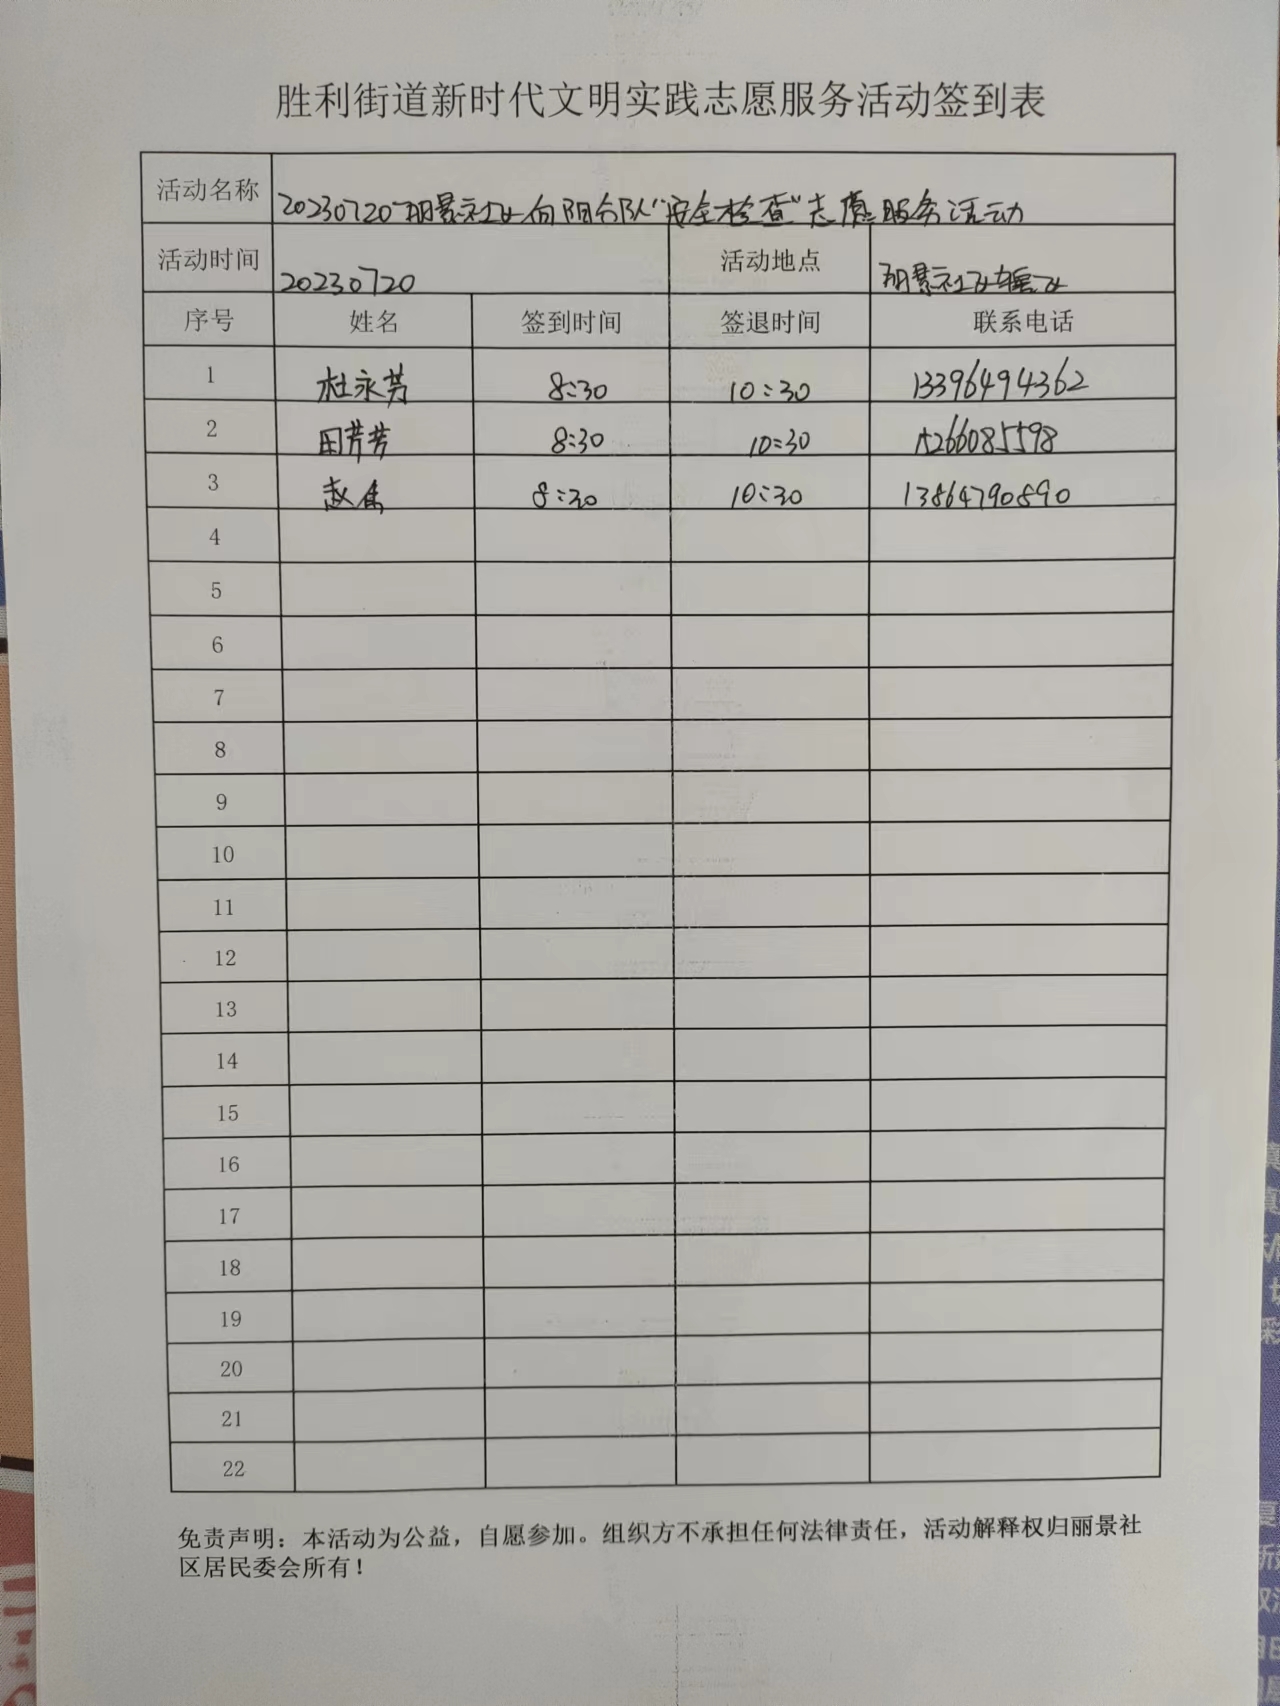 胜利街道新时代文明实践志愿服务活动签到表
活动名称 20230720丽景社区向阳分队“安全检查”志愿服务活动
活动时间 20230720 活动地点 丽景社区辖区
序号 姓名 签到时间 签退时间 联系电话
1 杜永芳 8:30 10:30 13396494362
2 田芳芳 8:30 10:30 15266085598
3 赵 8:30 10:30 13864790890
4
5
6
7
8
9
10
11
12
13
14
15
16
17
18
19
20
21
22
免责声明：本活动为公益，自愿参加。组织方不承担任何法律责任，活动解释权归丽景社
区居民委会所有！